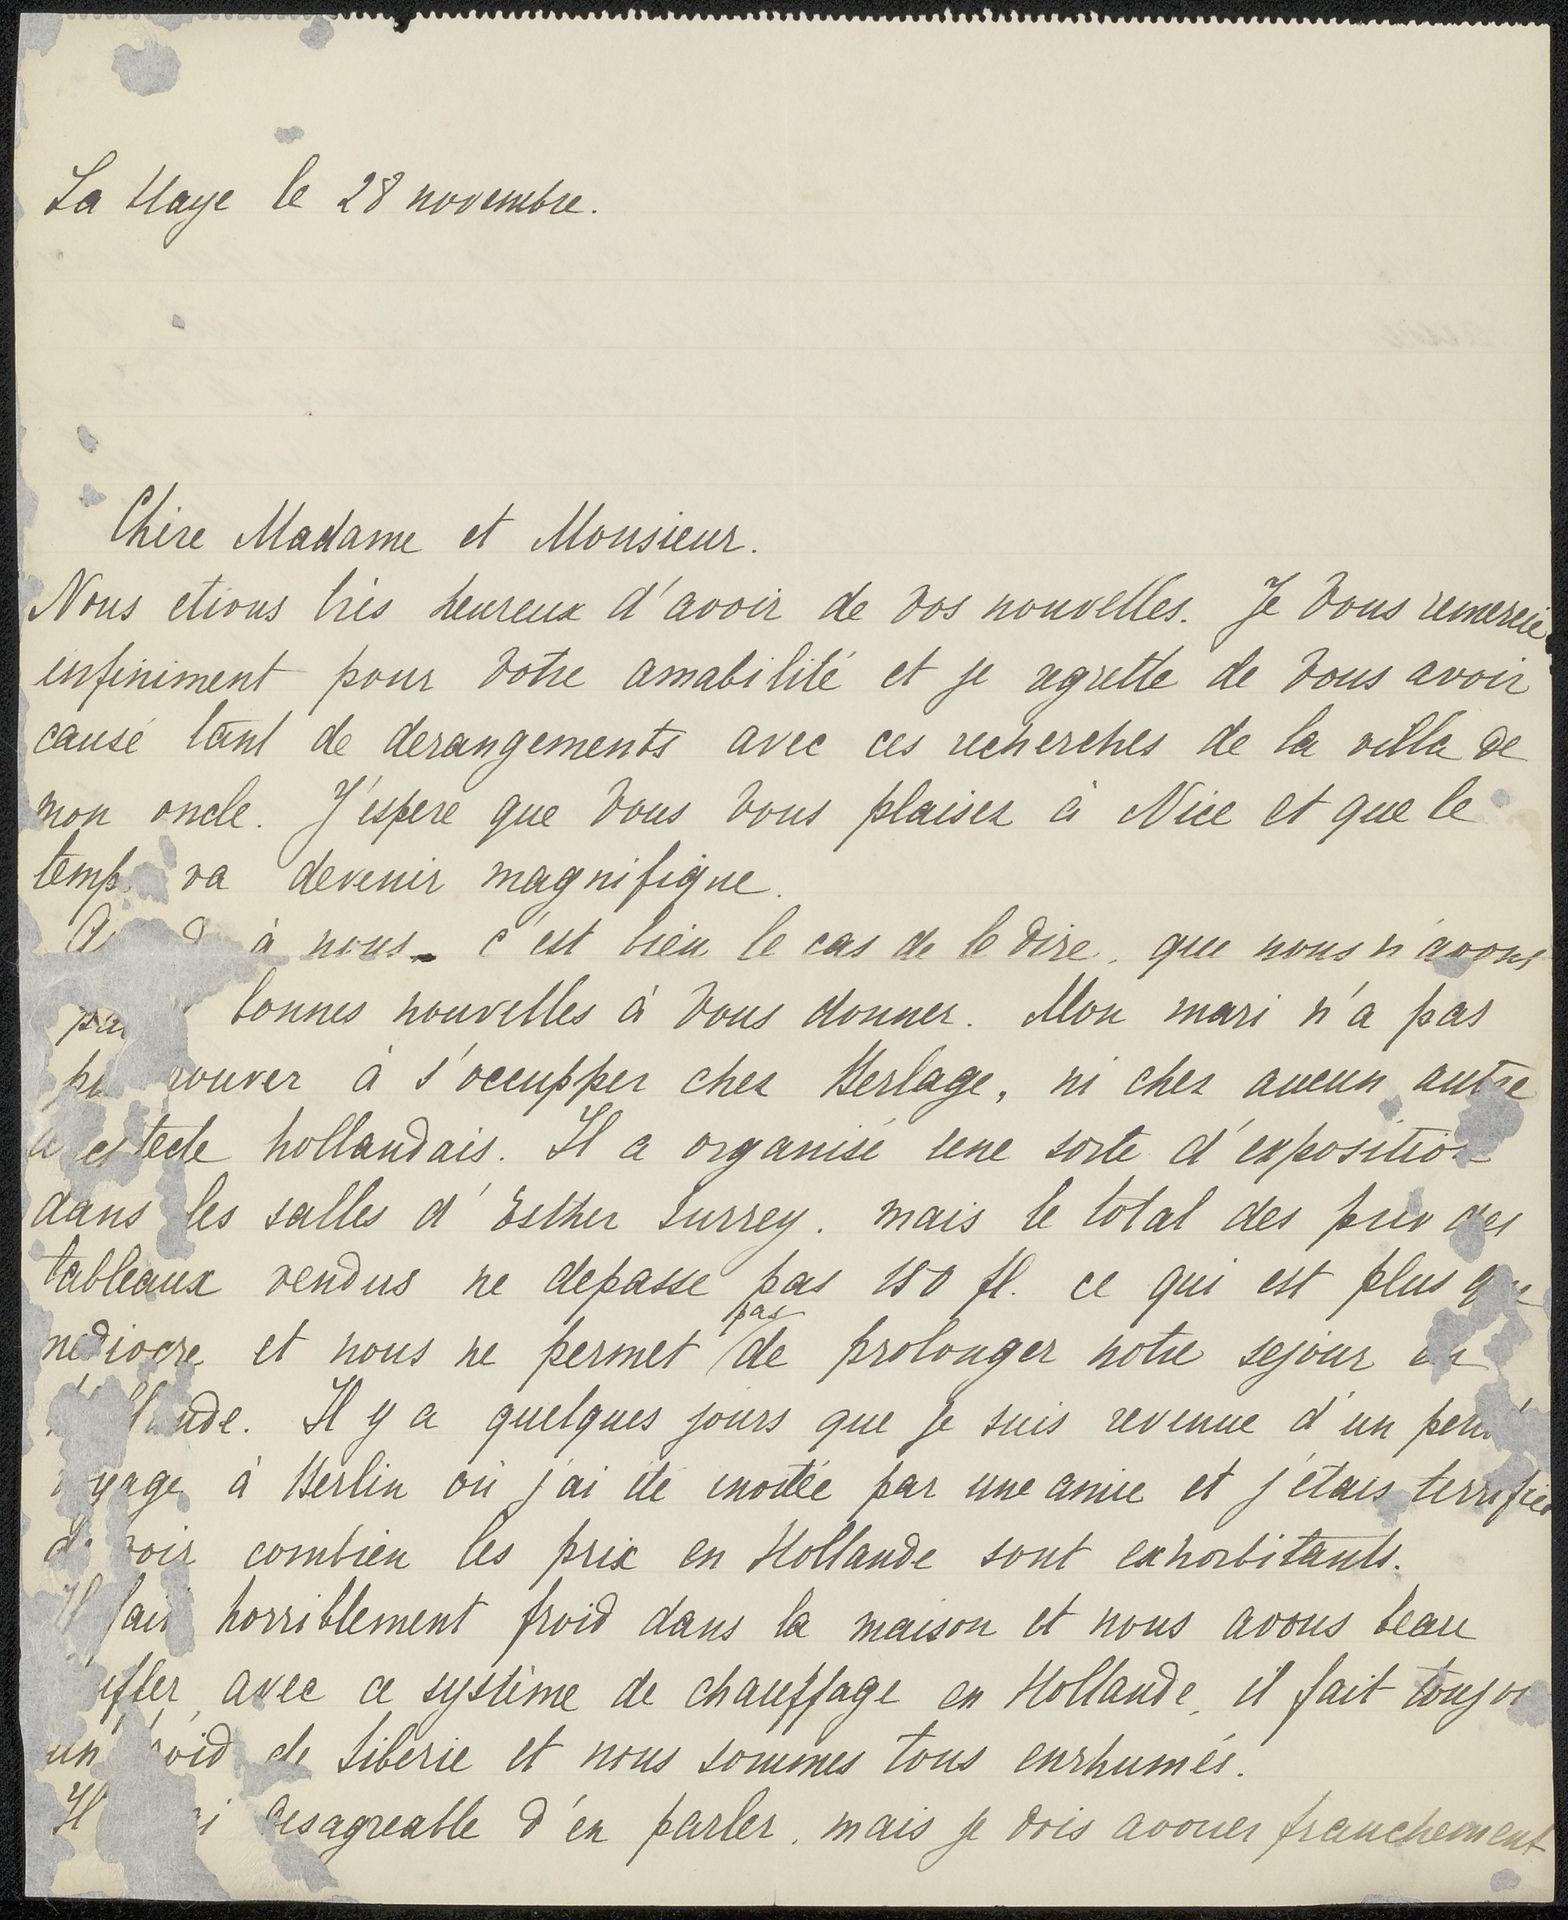 La Haye le 28 novembre.
Chère Madame et Monsieur.
Nous etions très heureux d'avoir de vos nouvelles. Je vous remercie
infiniment pour votre amabilité et je regrette de vous avoir
causé tant de derangements avec ces recherches de la villa de
mon oncle. J'espere que vous vous plaisez à Nice et que le
temp va devenir magnifique.
à nous - c'est bien le cas de le dire, que nous n'avons
bonnes nouvelles à vous donner. Mon mari n'a pas
à s'occupper chez Berlage, ni chez aucun autre
hollandais. Il a organisé une sorte d'exposition
dans les salles d'Esther Surrey. mais le total des prix des
tableaux vendus ne depasse pas 180 fl. ce qui est plus que
mediocre et nous ne permet pas de prolonger notre sejour en
Il y a quelques jours que je suis revenue d'un
à Berlin où j'ai été invitée par une amie et j'étais terrifiée
voir combien les prix en Hollande sont exhorbitants.
Il fait horriblement froid dans la maison et nous avons beau
avec ce système de chauffage en Hollande, il fait
un froid de Siberie et nous sommes tous enrhumés.
desagreable d'en parler, mais je dois avouer franchement